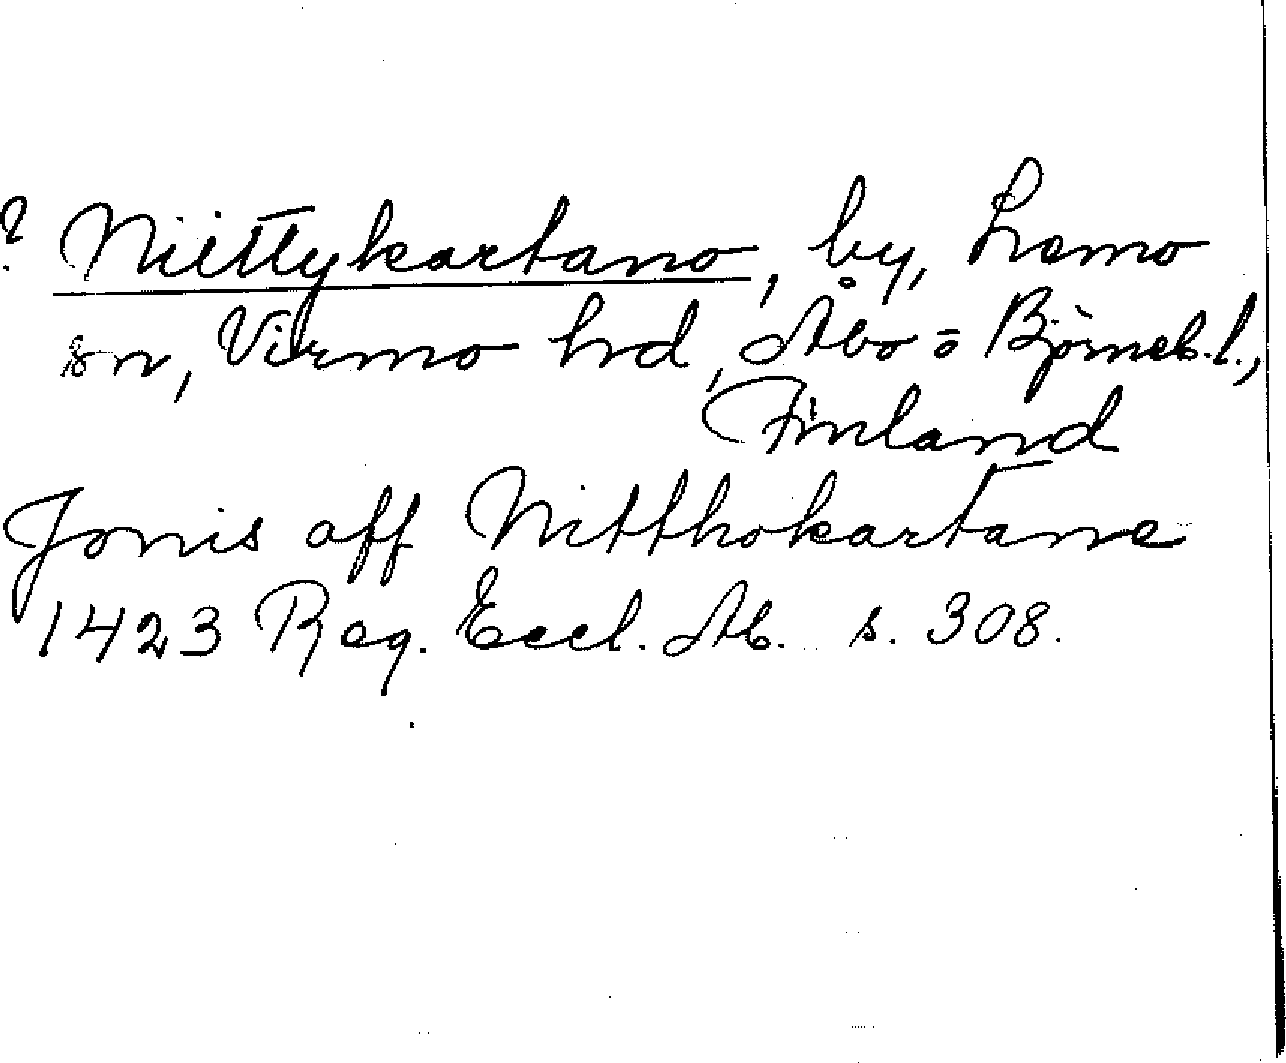 ? Niittykartano, by, Lemo
sn, Virmo hd, Åbo = Björneb. l.,
Finland
Jonis aff Nitthokartane
1423 Reg. Eccl. Ab. s. 308.